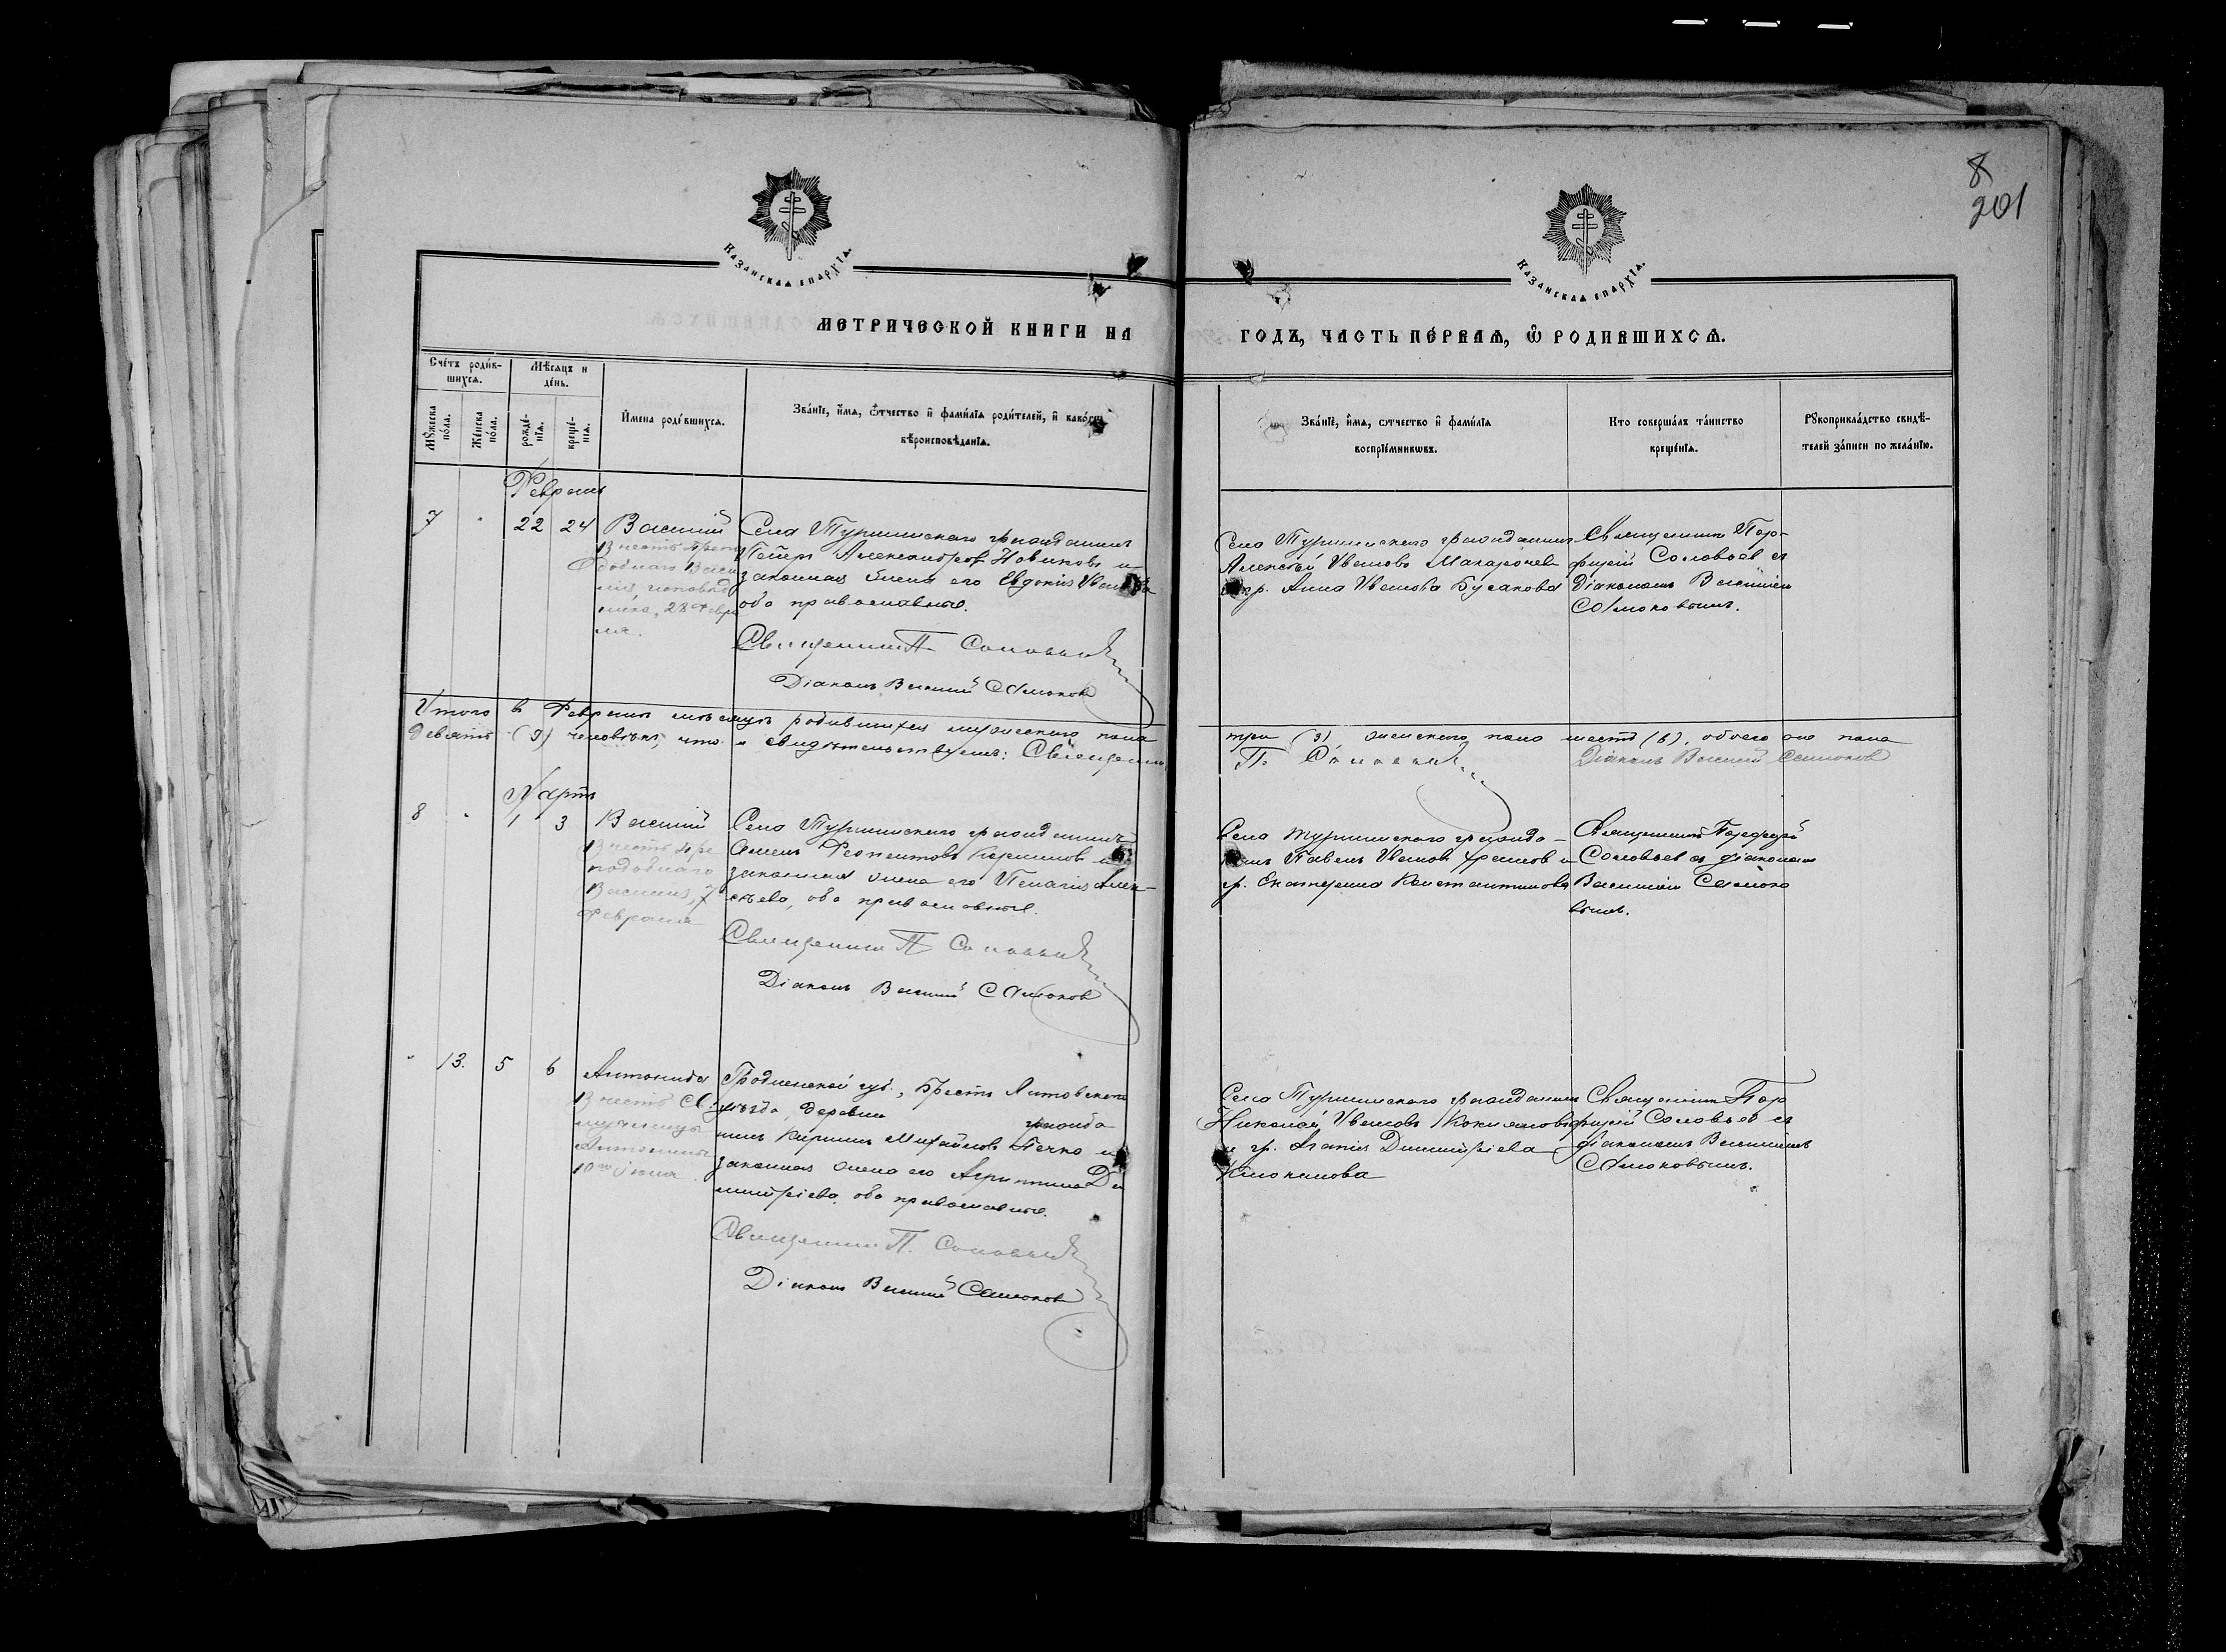 8
201
Казанская епархїа.
Казанская епархїа.
МЕТРИЧЕСКОЙ КНИГИ НА
ГОДЪ, ЧАСТЬ ПЕ́РВАѦ, Ѿ РОДИВШИХСѦ.
Сче́тъ роди́в-
шихсѧ.
Мѣ́сѧцъ и
де́нь.
Мꙋ́жеска
по́ла.
Же́нска
по́ла.
рожде́-
нїѧ.
креще́-
нїѧ.
И҆мена роди́вшихсѧ.
Зва́нїе, и҆́мѧ, ѻ҆́тчество и҆ фами́лїѧ роди́телей, и҆ како́гѡ
вѣроисповѣ́данїѧ.
Зва́нїе, и҆́мѧ, ѻтчество и҆ фами́лїѧ
воспрїе́мникѡвъ.
Кто соверша́лъ та́инство
креще́нїѧ.
Рꙋкоприкла́дство свидѣ́-
телей за́писи по жела́нїю.
Февраль
7 " 22 24 Василий
В честь Препо
добнаго Васи
лія, исповѣд
ника, 28 Февра
ля.
Села Турминскаго гражданинъ
Петръ Александровъ Новиковъ и
законная жена его Евдокія Иванова
оба православные.
Священникъ П. Соловьев
Діаконъ Василий Самоков
Села Турминскаго гражданинъ
Алексѣй Ивановъ Макарочев
и гр. Анна Иванова Бусакова
Священникъ Пор-
фирій Соловьев съ
Діакономъ Василіем
Самоковымъ.
Итого в Феврале мѣсяцѣ родившихся мужескаго пола
три (3) женскаго пола шесть (6), обоего же пола
девять (9) человѣкъ, что и свидѣтельствуемъ: Священник
П. Соловьев
Діаконъ Василий Самоков
Мартъ
8 " 1 3 Василий
В честь пре
подобнаго
Василія, 7
Февраля
Села Турминскаго гражданинъ
Семенъ Феоктистовъ Кормишов и
законная жена его Пелагія Алек-
сѣева, оба православные.
Священник П Соловьев
Діаконъ Василий Самоков
Села Турминскаго гражда-
нинъ Павелъ Ивановъ и
гр. Екатерина Константинова
Священникъ Порфирій
Соловьев съ діакономъ
Василіем Самоко
вымъ.
" 13. 5 6 Антонида
В честь Св.
мученицы
Антонины
10го Іюня
Гродненской губ., Брестъ Литовскаго
уѣзда, деревни
гражда
нинъ Кириллъ Михайловъ Печко и
законная жена его Агриппина Ди
митріева, оба православные.
Священник П. Соловьев
Діаконъ Василий Самоков
Села Турминскаго гражданинъ
Николай Ивановъ
и гр. Агапія Димитріева
Священникъ Пор
фирій Соловьев съ
діакономъ Василіемъ
Самоковымъ.